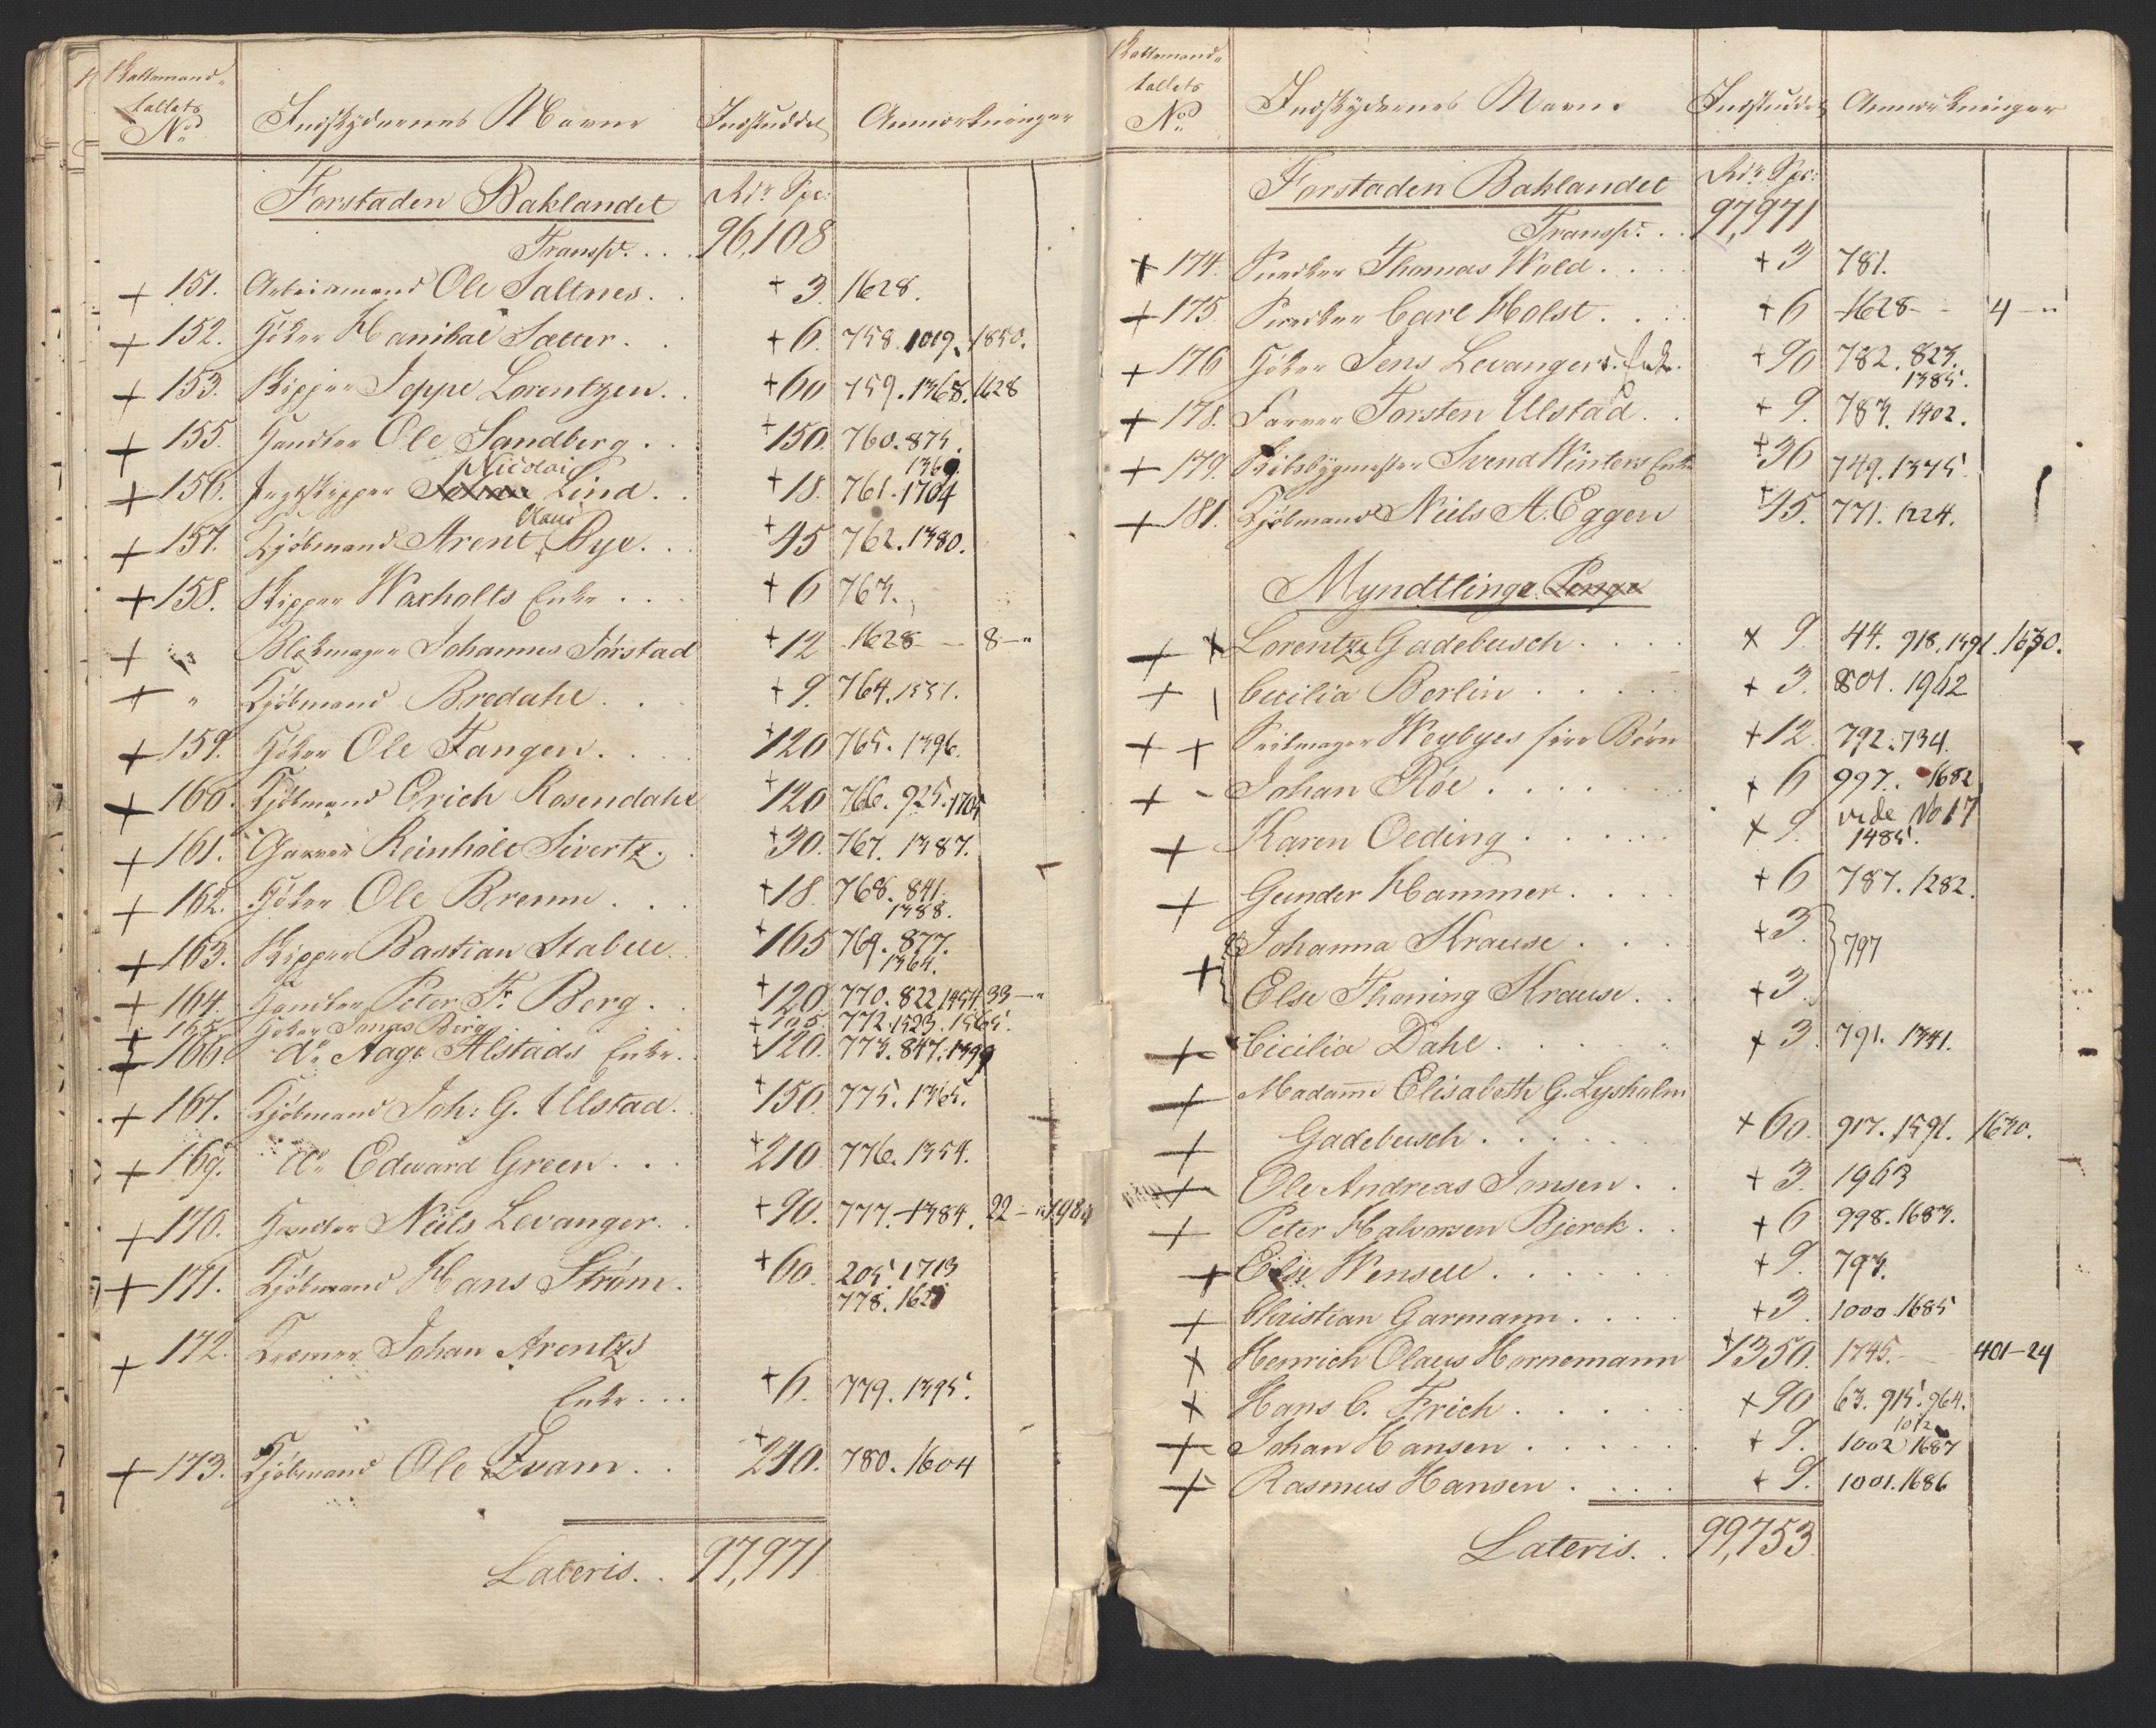 Skattemand-
tallets
No
Indskydernes Navne
Indskuddet
Anmærkninger
Forstaden Baklandet
Rdr Spc:
Transp. . . 96,108
+ 151. Arbeidsmand Ole Saltnes. . + 3. 1628.
+ 152. Høker Hanibal Sæter. . + 6. 758. 1019. 1850.
+ 153. Skipper Jeppe Lorentzen. . + 60 759. 1368. 1628
+ 155. Handler Ole Sandberg. . + 150. 760. 875.
1369.
Nicolai
+ 156. Jagtskipper Lind. . + 18. 761. 1704
Klaus
+ 157. Kjøbmand Arent Bye. . . + 45 762. 1380.
+ 158. Skipper Waxholts Enke . . . + 6 763.
+ " Blokmager Johannes Sørstad + 12 1628 — 8—"
+ " Kjøbmand Bredahl. . . + 9. 764. 1551.
+ 159. Høker Ole Fangen. . . + 120 765. 1396.
+ 160. Kjøbmand Erich Rosendahl + 120 766. 925. 1705
+ 161. Garver Reinholt Sivertz. . + 30. 767. 1387.
+ 162. Høker Ole Brenne. . . + 18. 768. 841.
1388.
+ 163. Skipper Bastian Stabell. . + 165 769. 877.
1364.
+ 164. Handler Peter Fr. Berg. . + 120 770. 822. 1454. 33—"
+ 165. Høker Jonas Berg + 105. 772. 1523. 1565.
+ 166. do Aage Alstads Enke. . + 120. 773. 847. 1399
+ 167. Kjøbmand Joh: G. Ulstad. . + 150. 775. 1365.
+ 169. do Edward Green. . . + 210 776. 1354.
+ 170. Handler Niels Levanger. . + 90. 777. 1384. 22—"
+ 171. Kjøbmand Hans Strøm. . + 60. 205. 1713
778. 162
+ 172. Kræmer Johan Arentzs
Enke. . . + 6. 779. 1395.
+ 173. Kjøbmand Ole Kvam. . + 210. 780. 1604
Lateris. . 97,971
Skattemand-
tallets
No
Indskydernes Navne
Indskuddet
Anmærkninger
Forstaden Baklandet
Rdr Spc:
Transp. . . 97,971
+ 174. Snedker Thomas Wold. . . . + 3 781.
+ 175. Snedker Carl Holst. . . . + 6 1628 - 4—"
+ 176 Høker Jens Levangers Enk. + 90 782. 823.
1385.
+ 178. Farver Torsten Ulstad. . + 9. 783. 1402.
+ 179. Skibsbygmester Svend Winters Enke + 36 749. 1375.
+ 181. Kjøbmand Niels A. Eggen + 45. 771. 1224.
Myndtlinge Penge
+ + Lorentz Gadebusch. . . . + 9. 44. 918. 1591. 1630.
+ Cecilia Berlin . . . . . + 3. 801. 1962
+ + Seilmager Weybyes fire Børn + 12. 792. 734.
+ - Johan Röe . . . . . . . + 6 997. 1682
+ Karen Oeding . . . . . + 9. vide No 17
1485.
+ Gunder Hammer. . . . + 6 787. 1282.
Johanna Krause . . . + 3.
+ 797
Else Thoning Krause. . + 3.
+ Cicilia Dahl. . . . . . + 3. 791. 1341.
+ Madame Elisabeth G. Lysholm
+ Gadebusch. . . . . . + 60. 917. 1591. 1630.
+ Ole Andreas Jonsen. . + 3. 1963
+ Peter Halvorsen Bjerck. . + 6 998. 1683.
+ Else Wensell. . . . . . + 9. 793.
+ Christian Garmann. . . . + 3. 1000. 1685
+ Henrich Olaus Hornemann + 1350. 1745. — 401—24
+ Hans C. Frich. . . . . + 90. 63. 915. 964.
1012
+ Johan Hansen . . . . . + 9. 1002. 1687
+ Rasmus Hansen . . . . + 9. 1001. 1686
Lateris. . 99,753